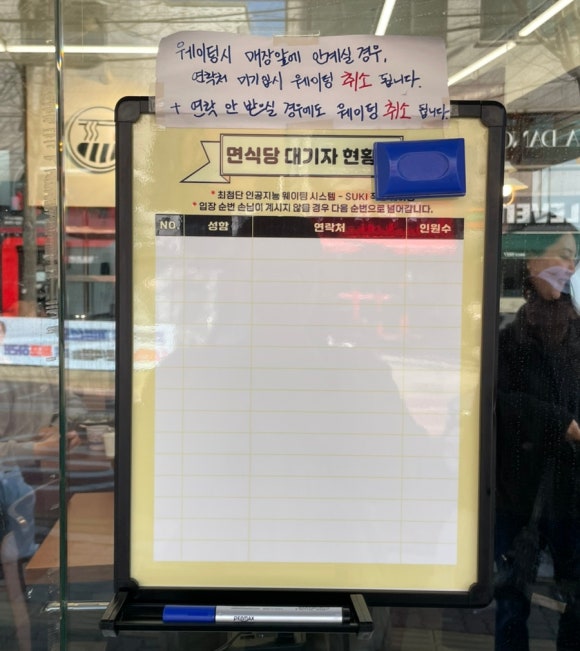 웨이팅시 매장앞에 안계실 경우,
연락처 미기입시 웨이팅 취소 됩니다.
+ 연락 안 받으실 경우에도 웨이팅 취소 됩니다
면식당 대기자 현황
* 최첨단 인공지능 웨이팅 시스템 - SUKI
* 입장 순번 손님이 계시지 않을 경우 다음 순번으로 넘어갑니다.
NO. 성함 연락처 인원수